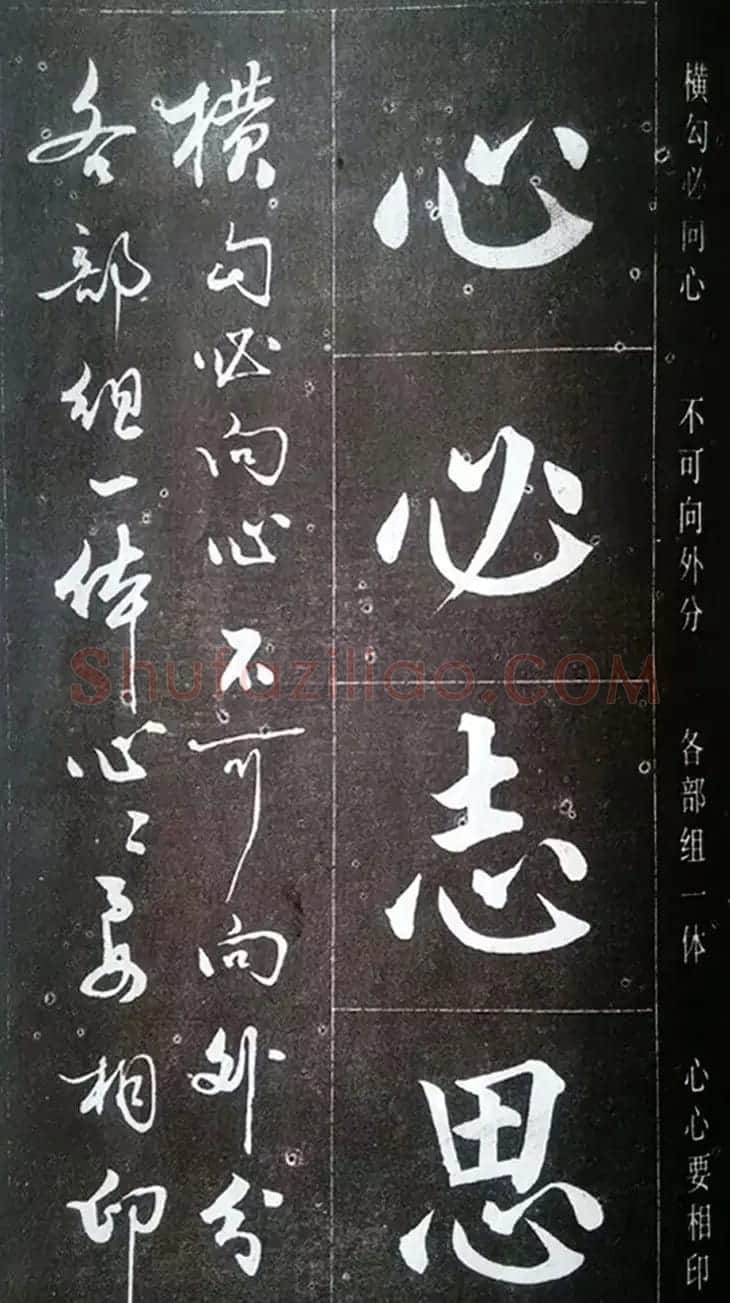 横勾必向心 不可向外分 各部组一体 心心要相印
心
必
志
思
横勾必向心不可向外分
各部组一体心〻要相印
Shufaziliao.COM